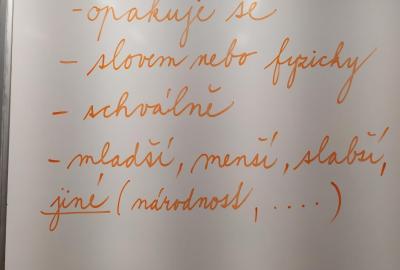 - opakuje se
- slovem nebo fyzicky
- schválně
- mladší, menší, slabší,
jiné (národnost, ....)